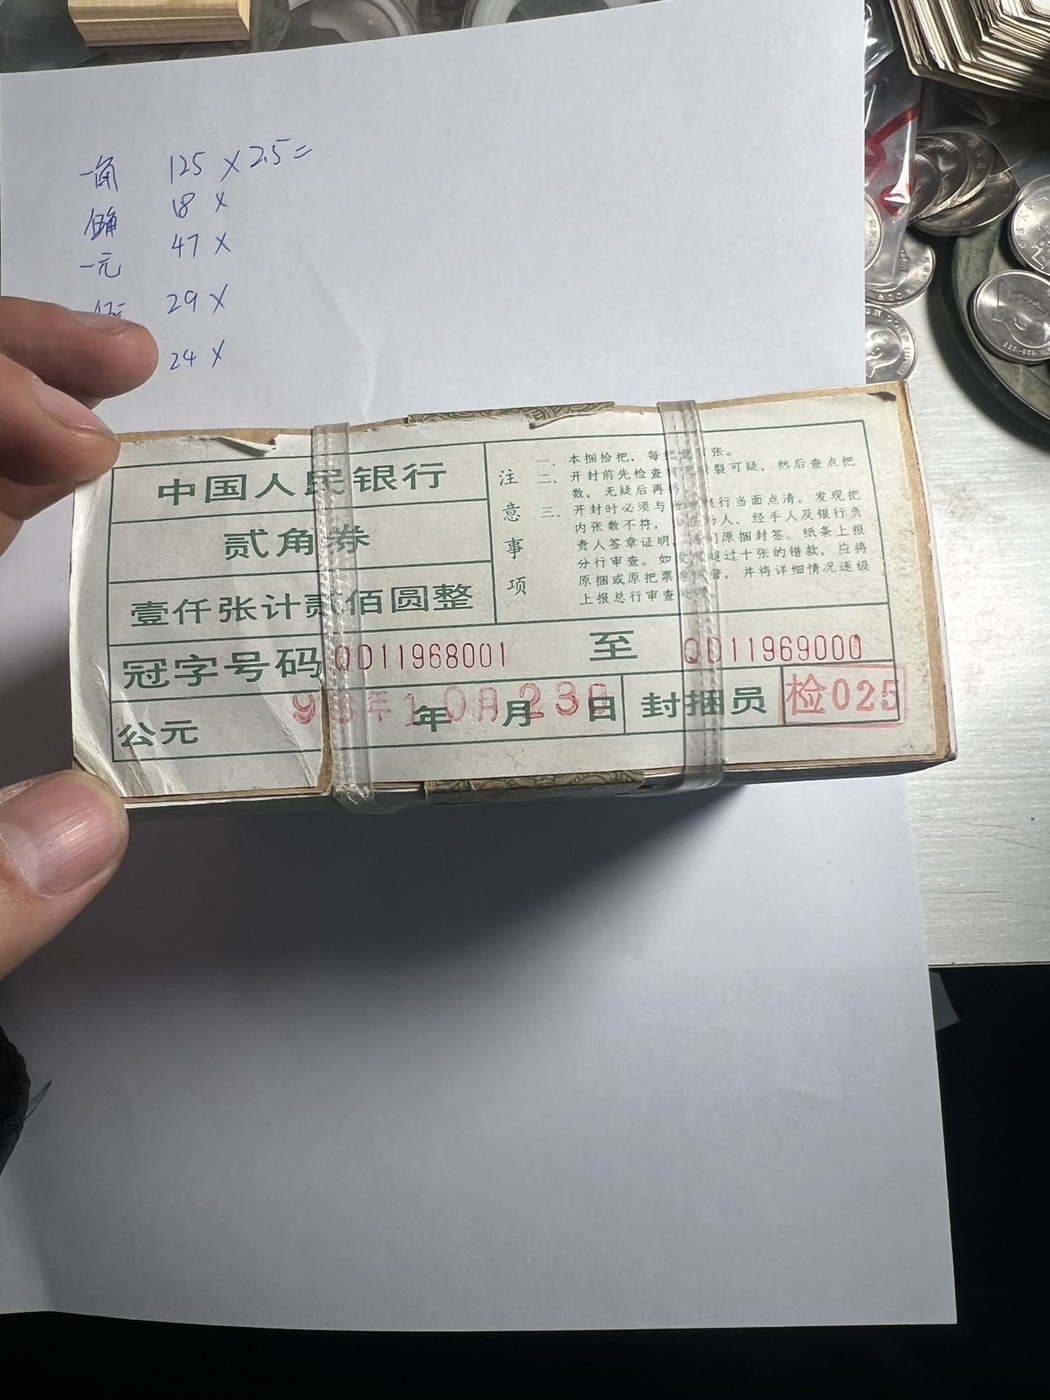 一角 125 × 2.5 =
伍角 18 ×
一元 47 ×
29 ×
24 ×
中国人民银行
贰角券
壹仟张计贰佰圆整
注意事项
一、本捆拾把，每把壹百张。
二、开封前先检查 裂可疑，然后查点把
数，无疑后再
三、开封时必须与 银行当面点清，发现把
内张数不符， 人、经手人及银行负
责人签章证明， 原捆封签、纸条上报
分行审查。如 超过十张的错款，应将
原捆或原把票 管，并将详细情况逐级
上报总行审查
冠字号码 QD11968001 至 QD11969000
公元 年10月23日 封捆员 检025